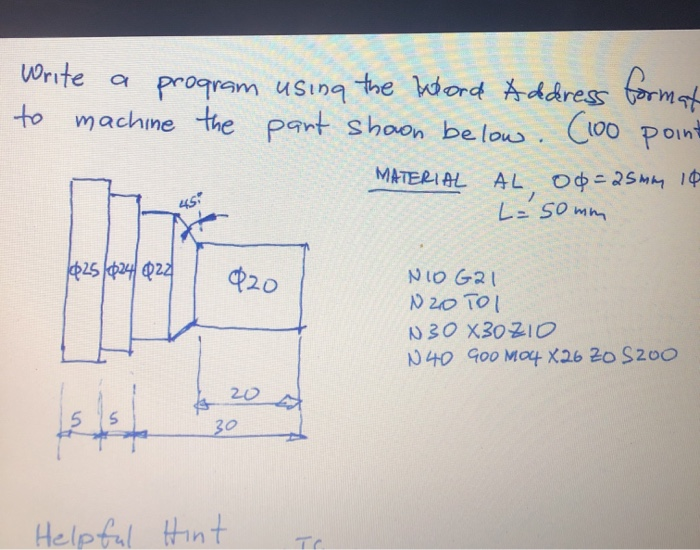 Write a program using the Word Address format
to machine the part shown below. (100 point
MATERIAL AL, OΦ=25mm 1Φ
L=50mm
45°
Φ25 Φ24 Φ22 Φ20
N10 G21
N20 T01
N30 X30Z10
N40 G00 M04 X26 Z0 S200
20
5 5 30
Helpful Hint